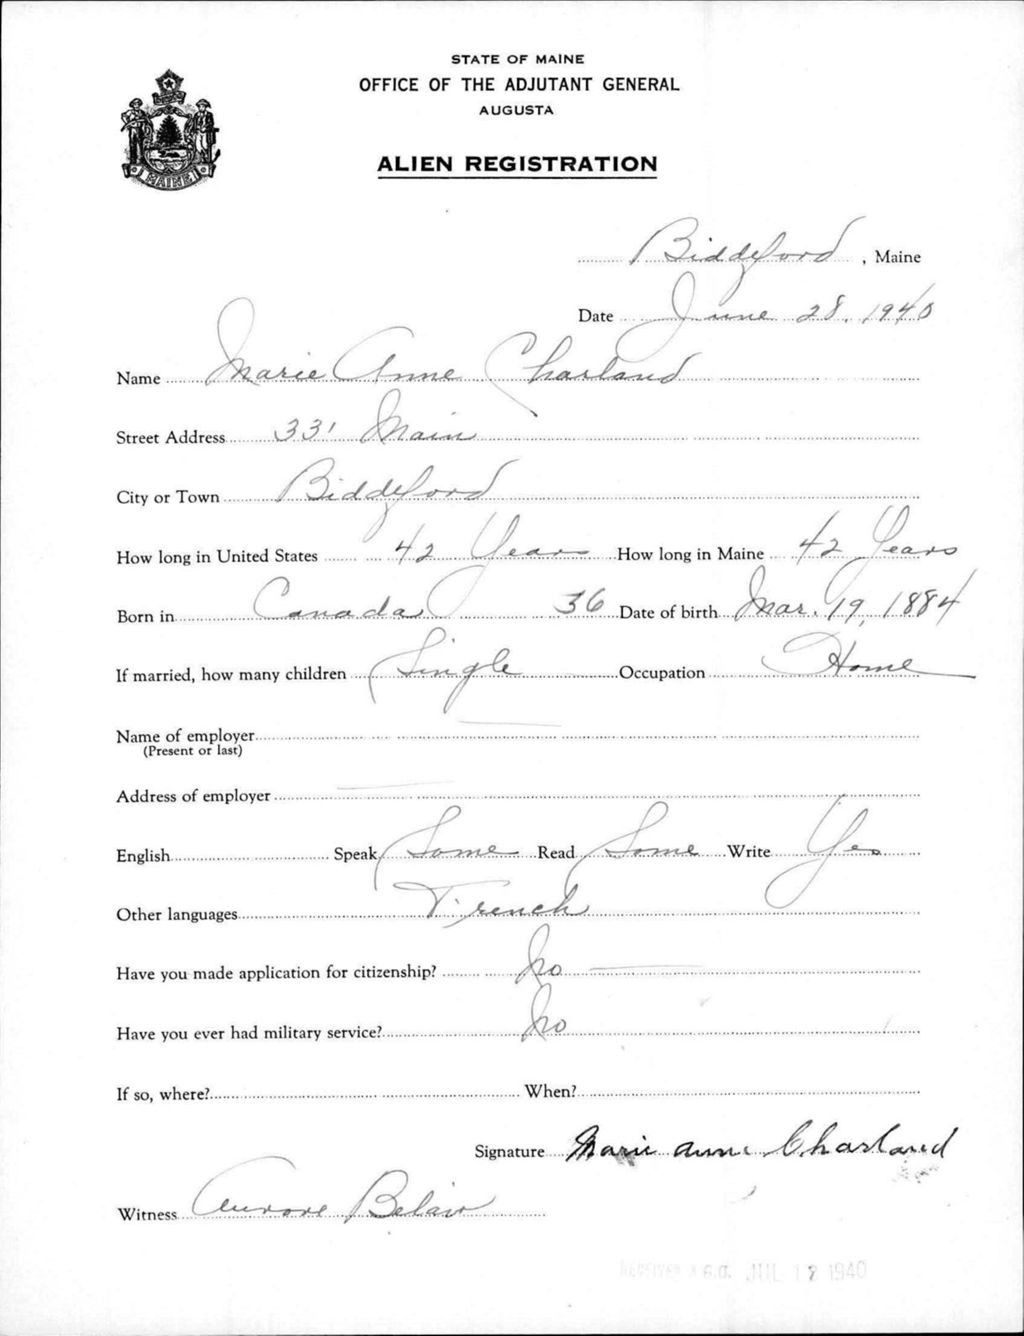 STATE OF MAINE
OFFICE OF THE ADJUTANT GENERAL
AUGUSTA
ALIEN REGISTRATION
MAINE
Biddeford, Maine
Date June 28, 1940
Name Marie Anne Charland
Street Address 331 Main
City or Town Biddeford
How long in United States 42 Years How long in Maine 42 Years
Born in Canada 36 Date of birth Mar. 19, 1884
If married, how many children Single Occupation Home
Name of employer
(Present or last)
Address of employer
English Speak Some Read Some Write Yes
Other languages French
Have you made application for citizenship? No
Have you ever had military service? No
If so, where? When?
Signature Marie Anne Charland
Witness Aurore Belair
RECEIVED A.G.O. JUL 12 1940